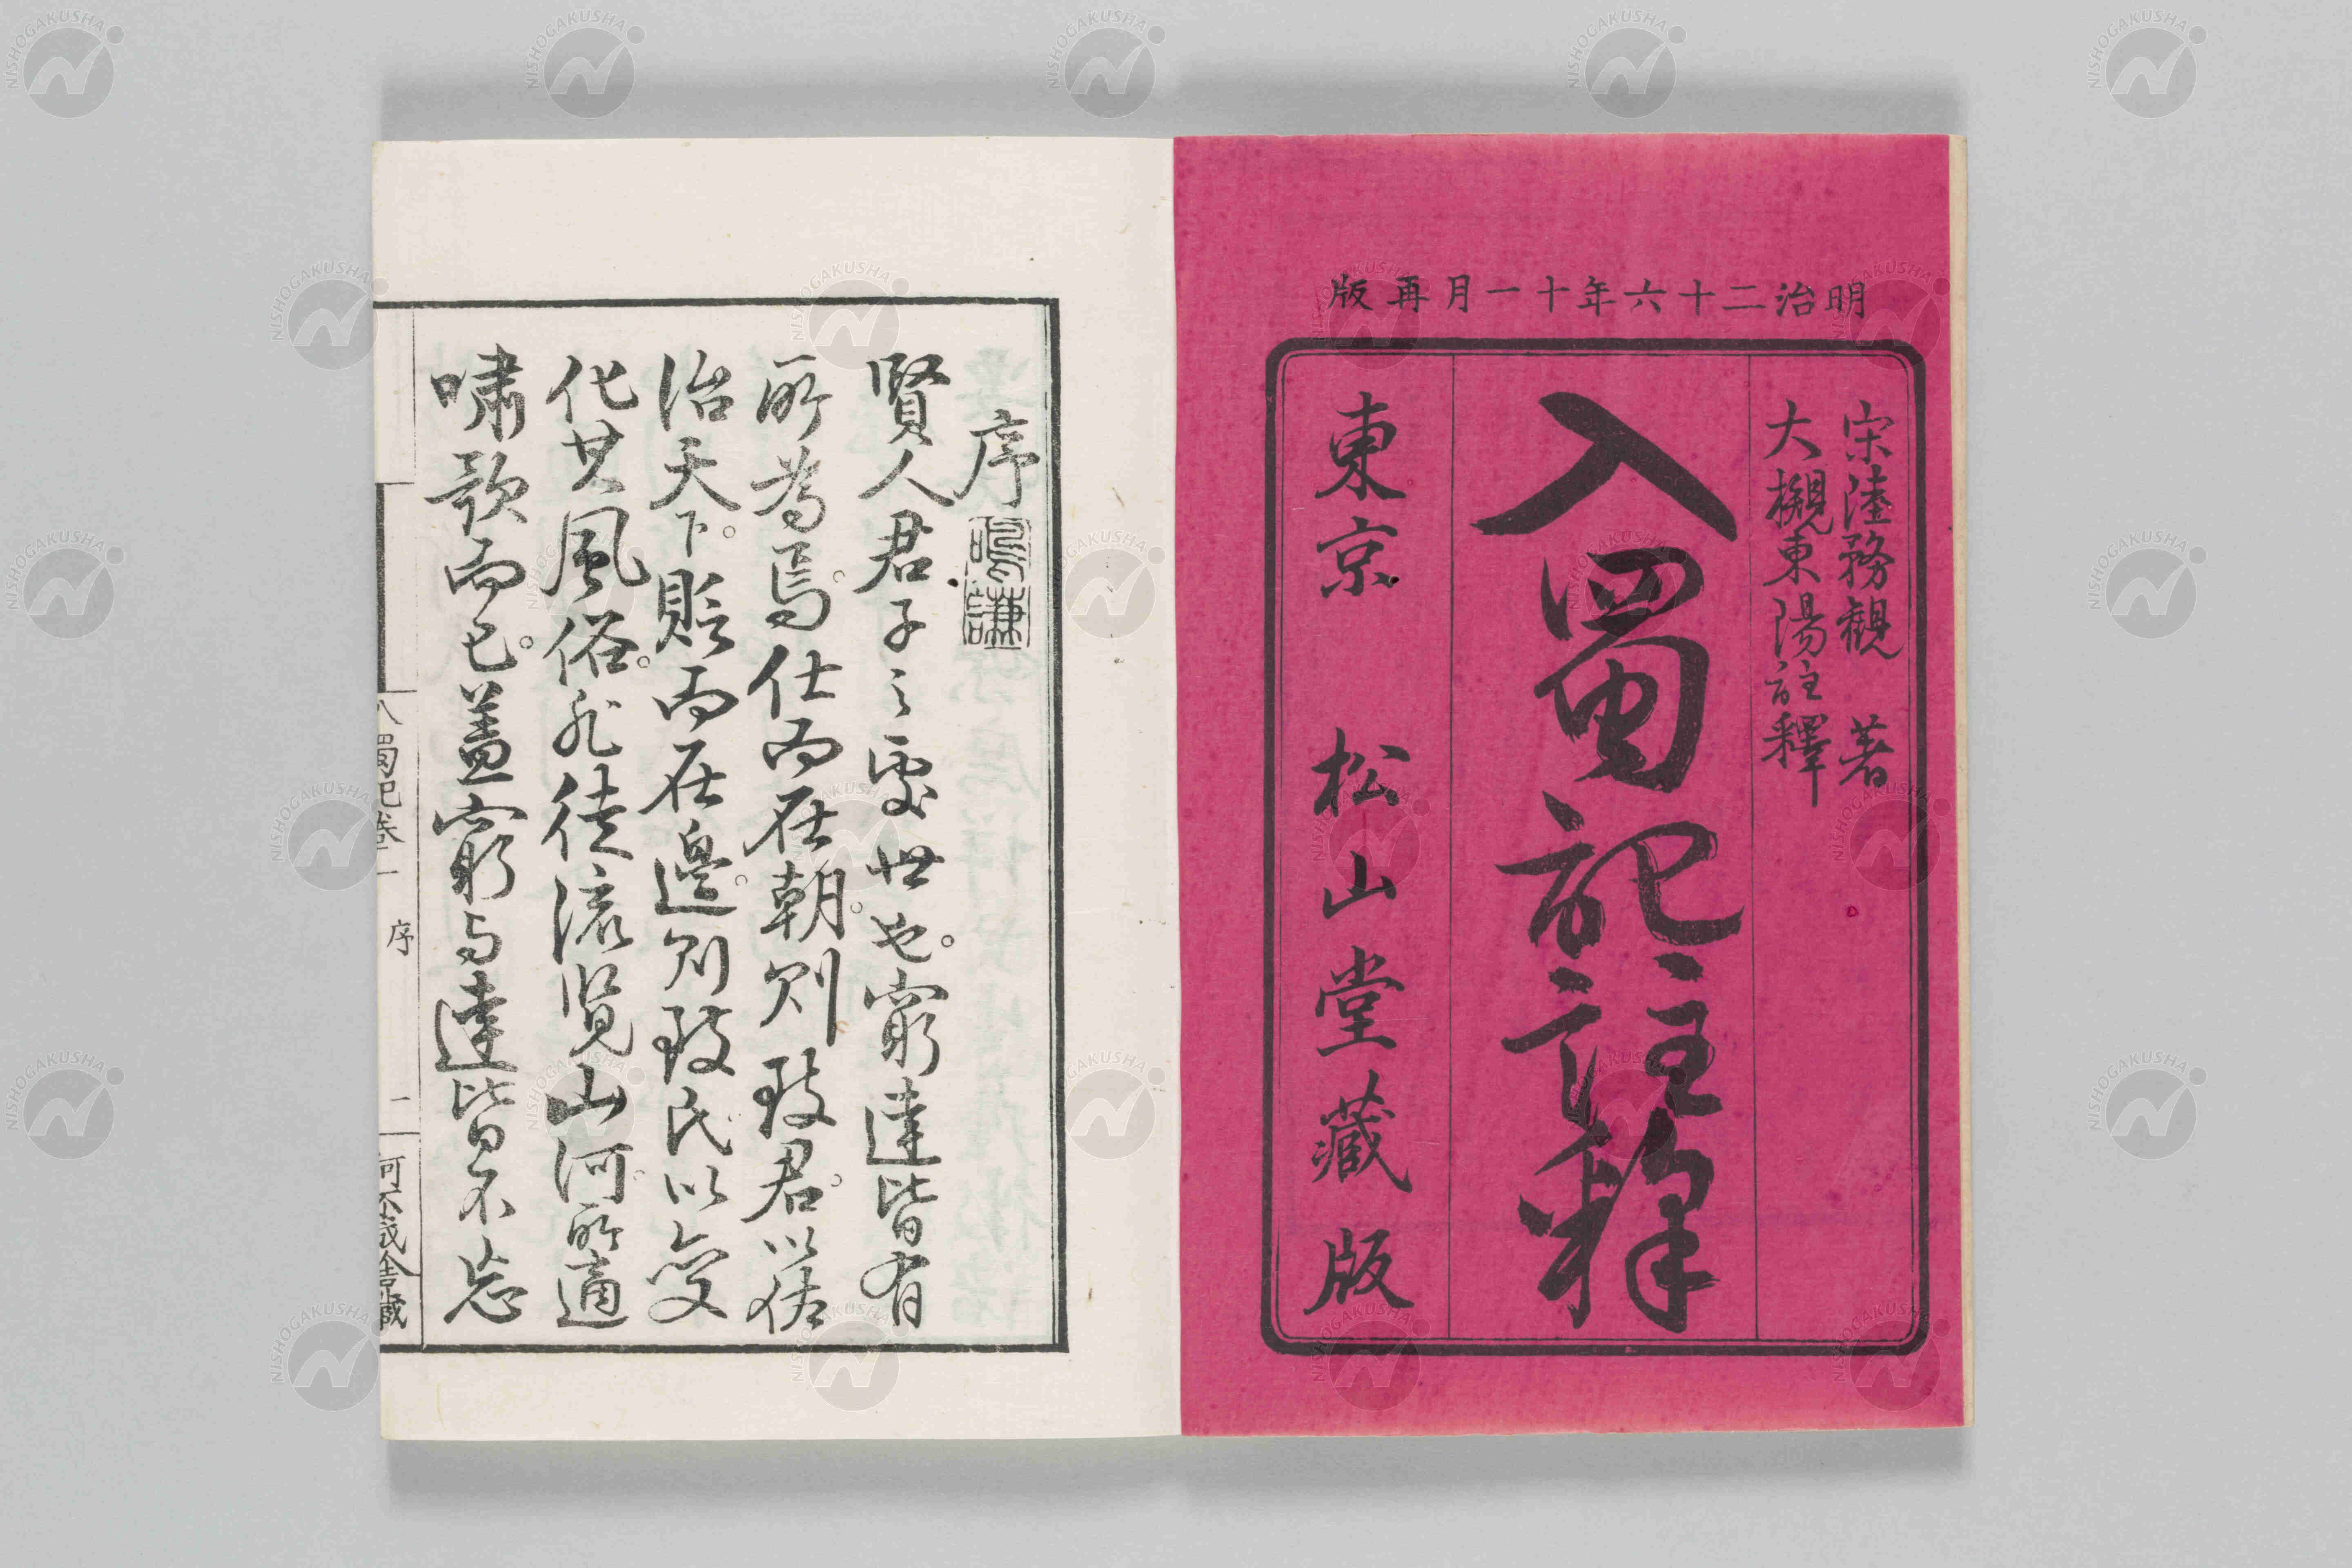 明治二十六年十一月再版
宋陸務観 著
大槻東陽註釋
入蜀記註釋
東京 松山堂藏版
序
鳴謙
賢人君子之處世也。窮達皆有
所為焉。仕而在朝。則致君。以佐
治天下。貶而在邊。則致民以變
化其風俗。非徒流覽山河。所適
嘯歌而已。蓋窮与達皆不忘
入蜀記卷一 序 一
NISHOGAKUSHA